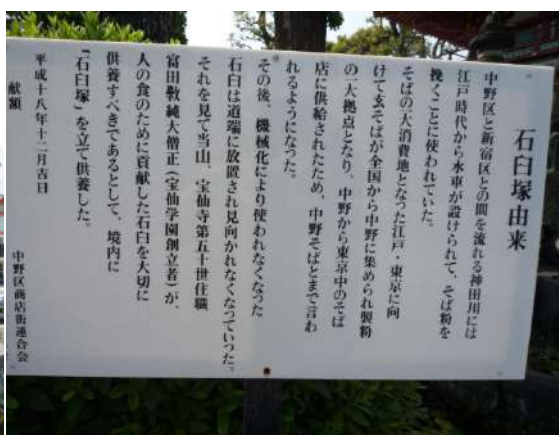 石臼塚由来
中野区と新宿区との間を流れる神田川には
江戸時代から水車が設けられて、そば粉を
挽くことに使われていた。
そばの一大消費地となった江戸・東京に向
けて玄そばが全国から中野に集められ製粉
の一大拠点となり、中野から東京中のそば
店に供給されたため、中野そばとまで言わ
れるようになった。
その後、機械化により使われなくなった
石臼は道端に放置され見向かれなくなっていった。
それを見て当山、宝仙寺第五十世住職
富田斅純大僧正(宝仙学園創立者)が、
人の食のために貢献した石臼を大切に
供養すべきであるとして、境内に
「石臼塚」を立て供養した。
平成十八年十二月吉日
献額
中野区商店街連合会